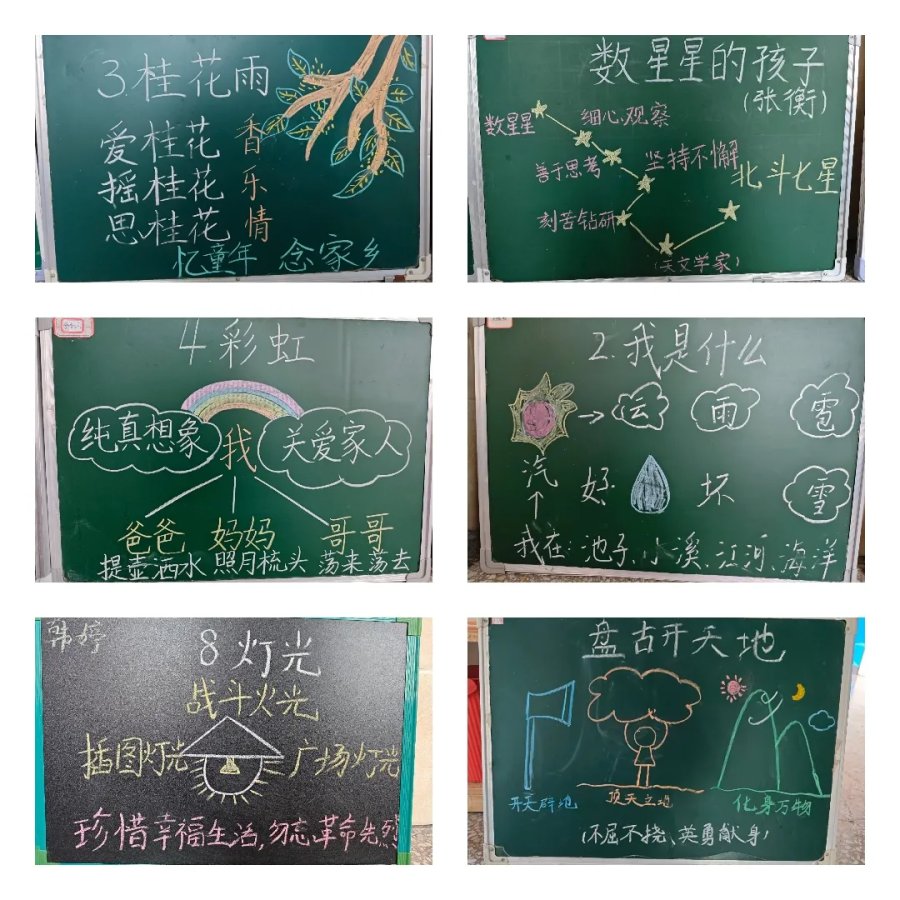 3.桂花雨
爱桂花 香
摇桂花 乐
思桂花 情
忆童年 念家乡
数星星的孩子
(张衡)
数星星 细心观察
善于思考 坚持不懈
北斗七星
刻苦钻研
(天文学家)
4.彩虹
纯真想象 我 关爱家人
爸爸 妈妈 哥哥
提壶洒水 照月梳头 荡来荡去
2.我是什么
云 雨 雹
汽 好 坏 雪
我在:池子、小溪、江河、海洋
韩婷
8 灯光
战斗火光
插图灯光 广场灯光
珍惜幸福生活,勿忘革命先烈
盘古开天地
开天辟地 顶天立地 化身万物
(不屈不挠、英勇献身)